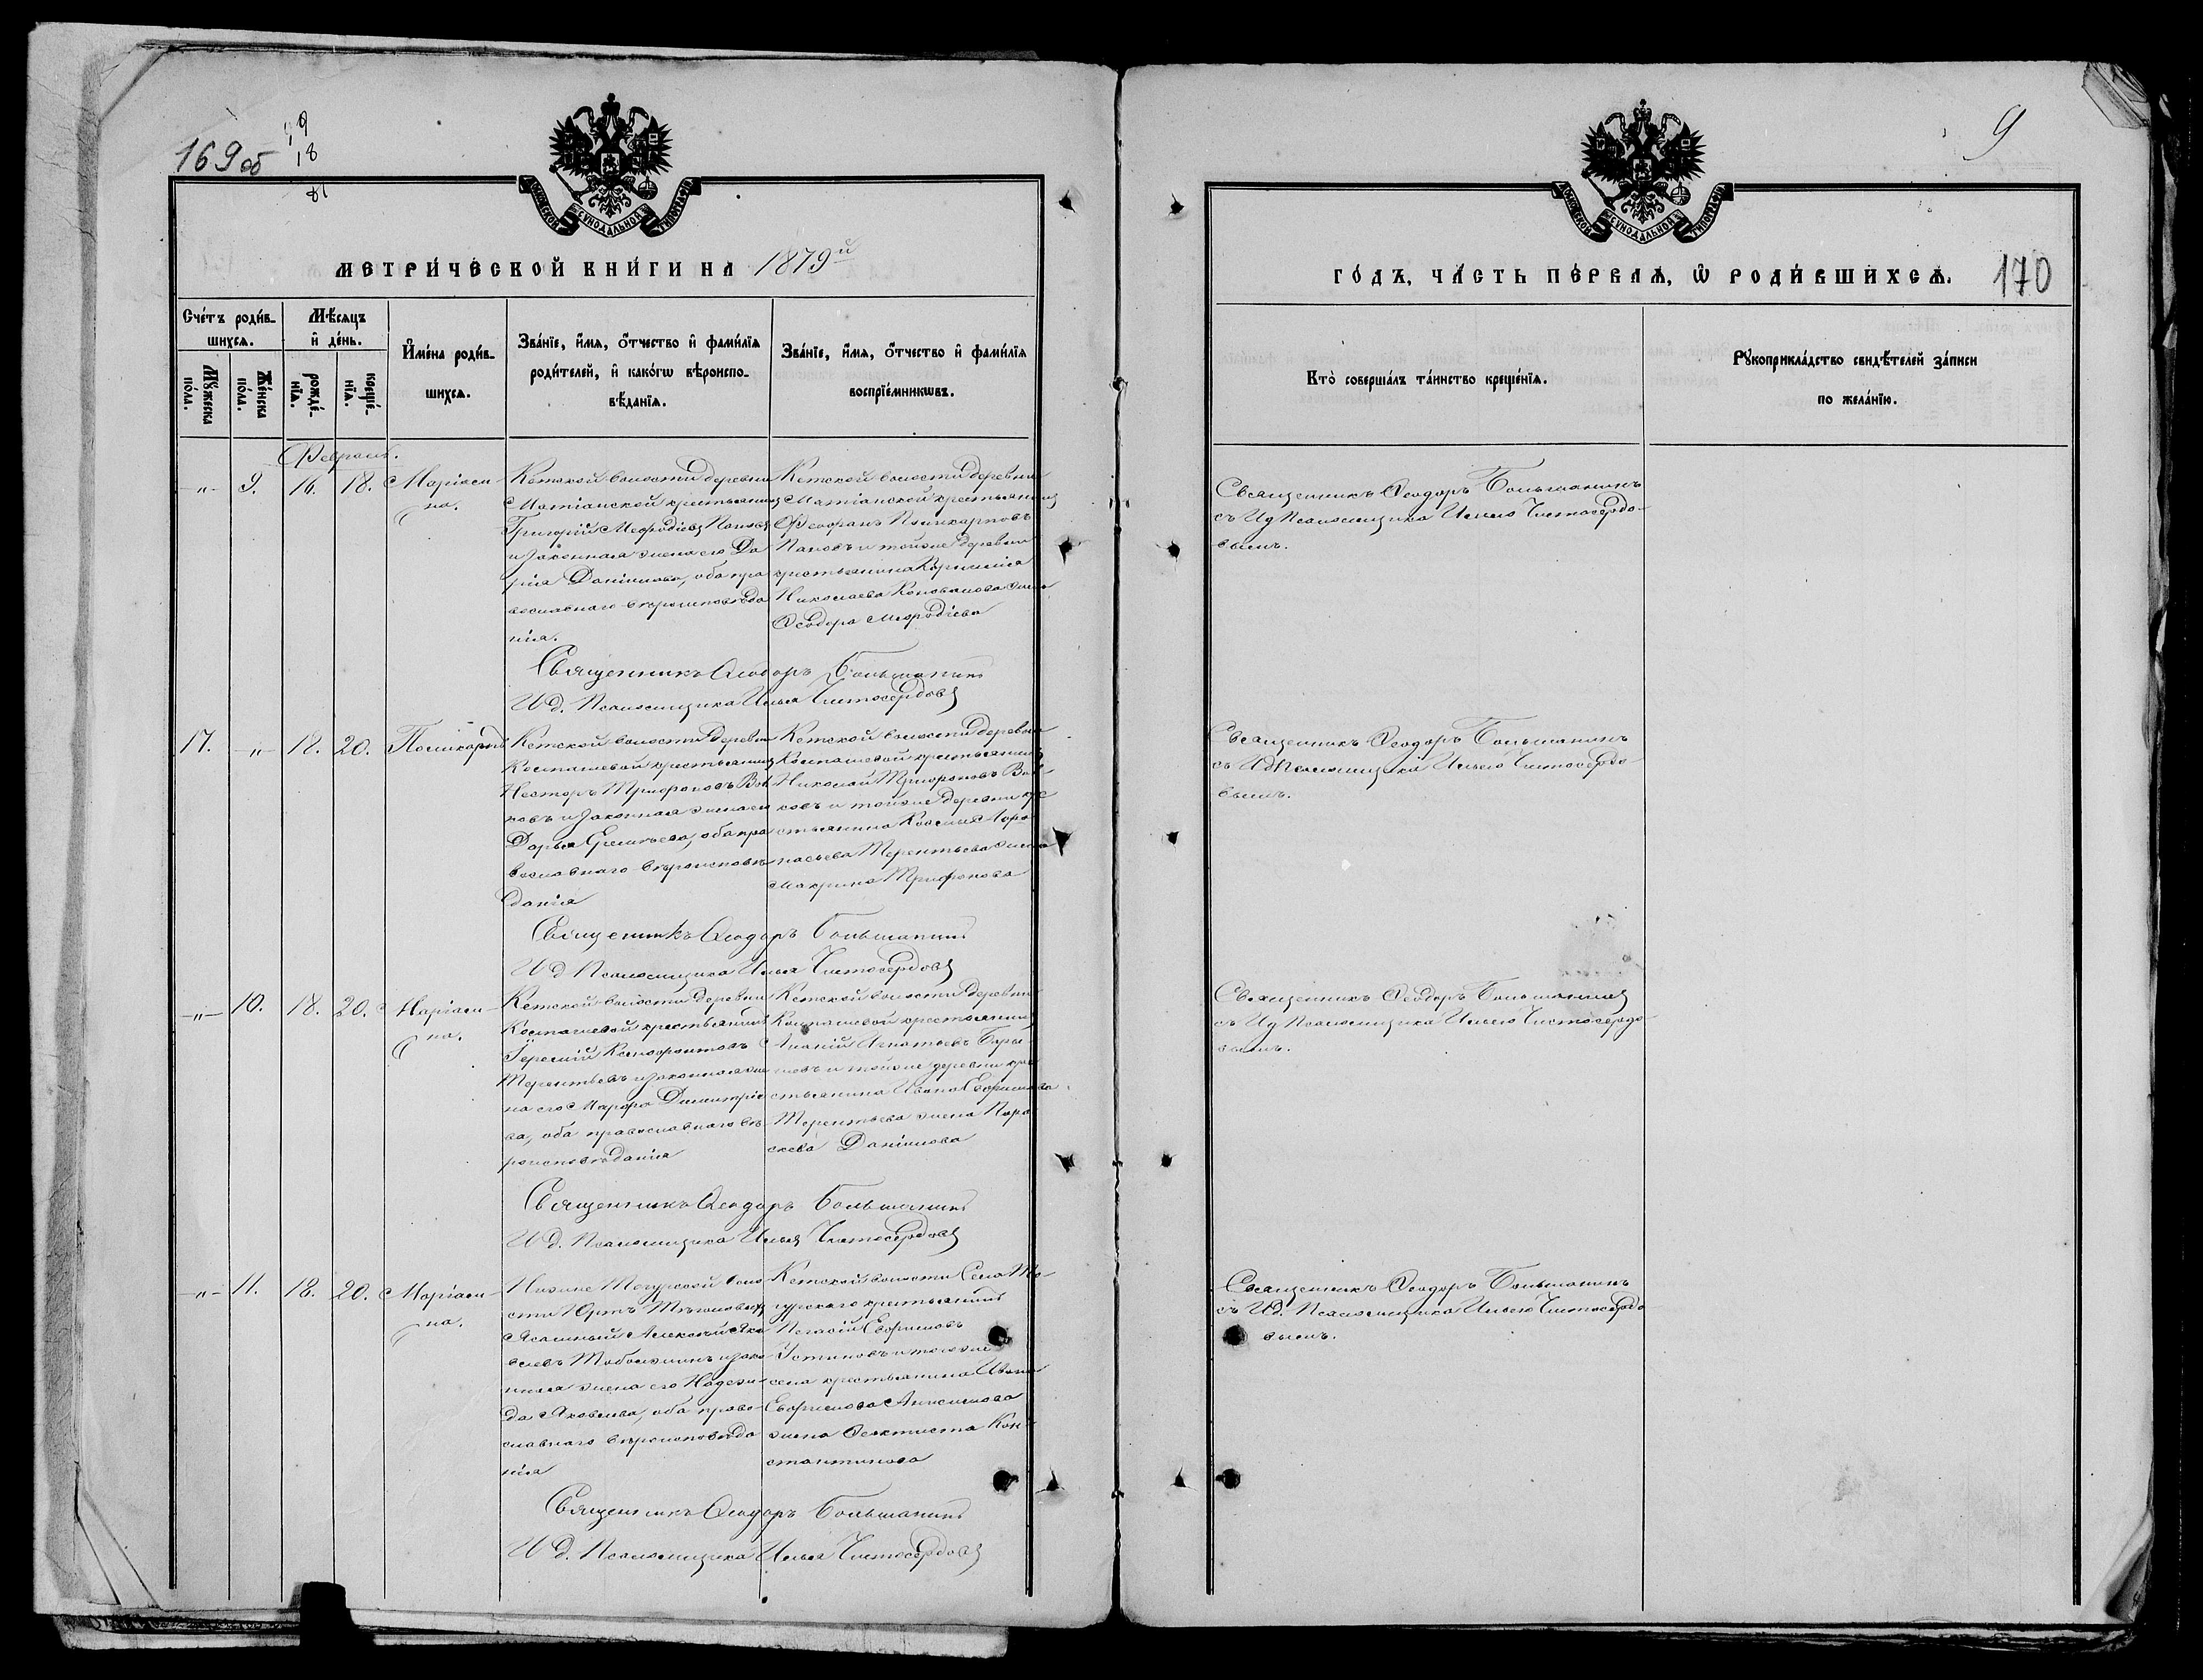 169 об
9
18
18
МОСКОВСКОЙ СѴНОДАЛЬНОЙ ТИПОГРАФІИ
МЕТРИ́ЧЕСКОЙ КНИ́ГИ НА 1879й
Сче́тъ роди́в-
шихсѧ.
Мѣ́сѧцъ
и҆ де́нь.
И҆мена̀ роди́в-
шихсѧ.
Зва́нїе, и҆́мѧ, ѻ҆́тчество и҆ фами́лїѧ
роди́телей, и҆ како́гѡ вѣроиспо-
вѣ́данїѧ.
Зва́нїе, и҆́мѧ, ѻ҆́тчество и҆ фами́лїѧ
воспрїе́мникѡвъ.
Мꙋ́жеска
по́ла.
Же́нска
по́ла.
рожде́-
нїѧ.
креще́-
нїѧ.
Февраль.
-„- 9. 16. 18. Маріам-
на.
Кетской волости деревни
Матіанской крестьянинъ
Григорій Мефодіевъ Пановъ
и законная жена его Да
рія Даніилова, оба пра
вославнаго вѣроисповѣда
нія.
Кетской волости деревни
Матіанской крестьянинъ
Феофанъ Поликарповъ
Пановъ и тойже деревни
крестьянина Корнилія
Николаева Коновалова жена
Ѳеодора Мефодіева
Священникъ Ѳеодоръ Большанинъ
И д. Псаломщика Илья Чистосердовъ
17. -„- 18. 20. Поликарпъ
Кетской волости деревни
Костаревой крестьянинъ
Несторъ Трифоновъ Вол
ковъ и законная жена его
Дарья Ермилова, оба пра
вославнаго вѣроисповѣ
данія
Кетской волости деревни
крестьянинъ
Николай Трифоновъ Вол-
ковъ и тойже деревни кре
стьянина Космы Афа
насьева Терентьева жена
Макрина Трифонова
Священникъ Ѳеодоръ Большанинъ
И д Псаломщика Илья Чистосердовъ
-„- 10. 18. 20. Маріам-
на.
Кетской волости деревни
крестьянинъ
Іеремій Ксенофонтовъ
Терентьевъ и законная же
на его Марфа Димитріе
ва, оба православнаго вѣ-
роисповѣданія
Кетской волости деревни
крестьянинъ
Ананій Игнатьевъ Бары
шевъ и тойже деревни кре
стьянина Ивана Ефимова
Терентьева жена Пара
скева Даніилова
Священникъ Ѳеодоръ Большанинъ
И д. Псаломщика Илья Чистосердовъ
-„- 11. 18. 20. Маріам-
на.
Ниже Тогурской воло
сти Юртъ
Ясашный Алексѣй Яко
влевъ Тобольжинъ и зако
нная жена его Надеж-
да Яковлева, оба право-
славнаго вѣроисповѣда
нія
Кетской волости Села То-
гурскаго крестьянинъ
Ефимовъ
Устиновъ и тогоже
села крестьянина Ивана
Ефимова Анисимова
жена Ѳеоктиста Кон-
стантинова
Священникъ Ѳеодоръ Большанинъ
И д. Псаломщика Илья Чистосердовъ
9
МОСКОВСКОЙ СѴНОДАЛЬНОЙ ТИПОГРАФІИ
ГО́ДЪ, ЧА́СТЬ ПЕ́РВАѦ, Ѡ҆ РОДИ́ВШИХСѦ. 170
Кто̀ соверша́лъ та́инство креще́нїѧ.
Рꙋкоприкла́дство свидѣ́телей за́писи
по жела́нїю.
Священникъ Ѳеодоръ Большанинъ
съ И д Псаломщика Ильею Чистосердо-
вымъ.
Священникъ Ѳеодоръ Большанинъ
съ И д Псаломщика Ильею Чистосердо
вымъ.
Священникъ Ѳеодоръ Большанинъ
съ И д Псаломщика Ильею Чистосердо
вымъ.
Священникъ Ѳеодоръ Большанинъ
съ И д. Псаломщика Ильею Чистосердо
вымъ.